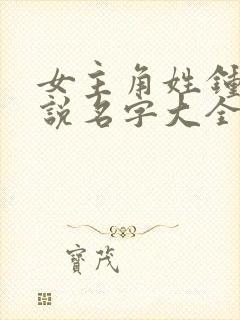 女主角姓鍾
說名字大全
寶茂